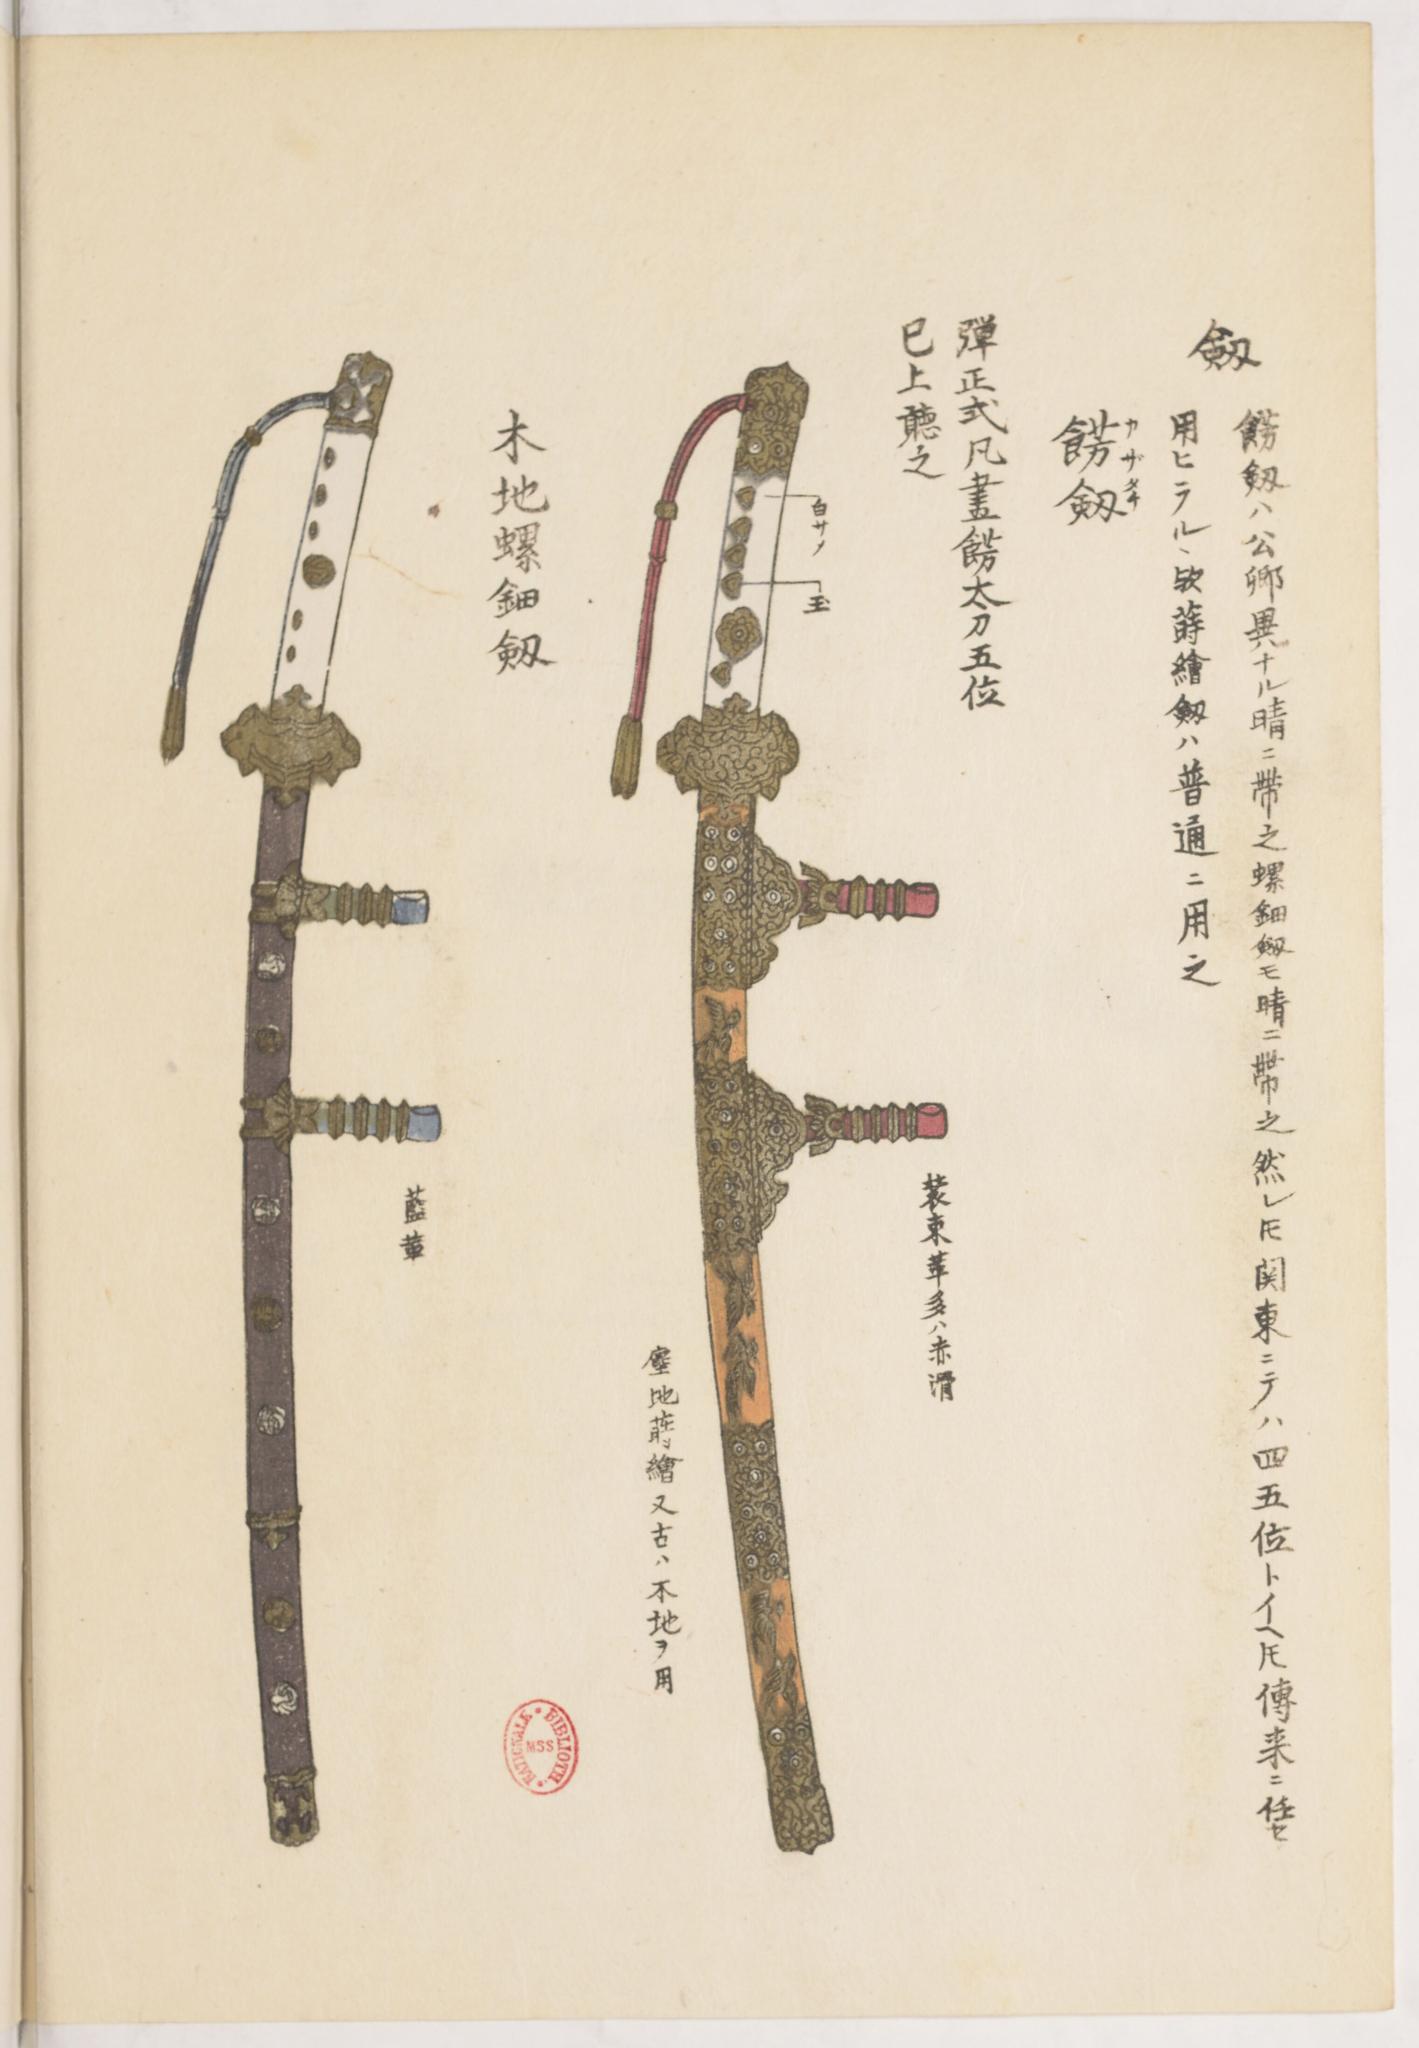 劔
餝劔ハ公卿異ナル晴ニ帶之螺鈿劔モ晴ニ帶之然レ𪜈関東ニテハ四五位トイヘ𪜈傳来ニ任セ
用ヒラル丶欤蒔繪劔ハ普通ニ用之
餝劔
カザタチ
彈正式凡畫餝太刀五位
已上聽之
白サメ
玉
装束革多ハ赤滑
塵地蒔繪又古ハ木地ヲ用
木地螺鈿劔
藍革
BIBLIOTH. NATIONALE
MSS